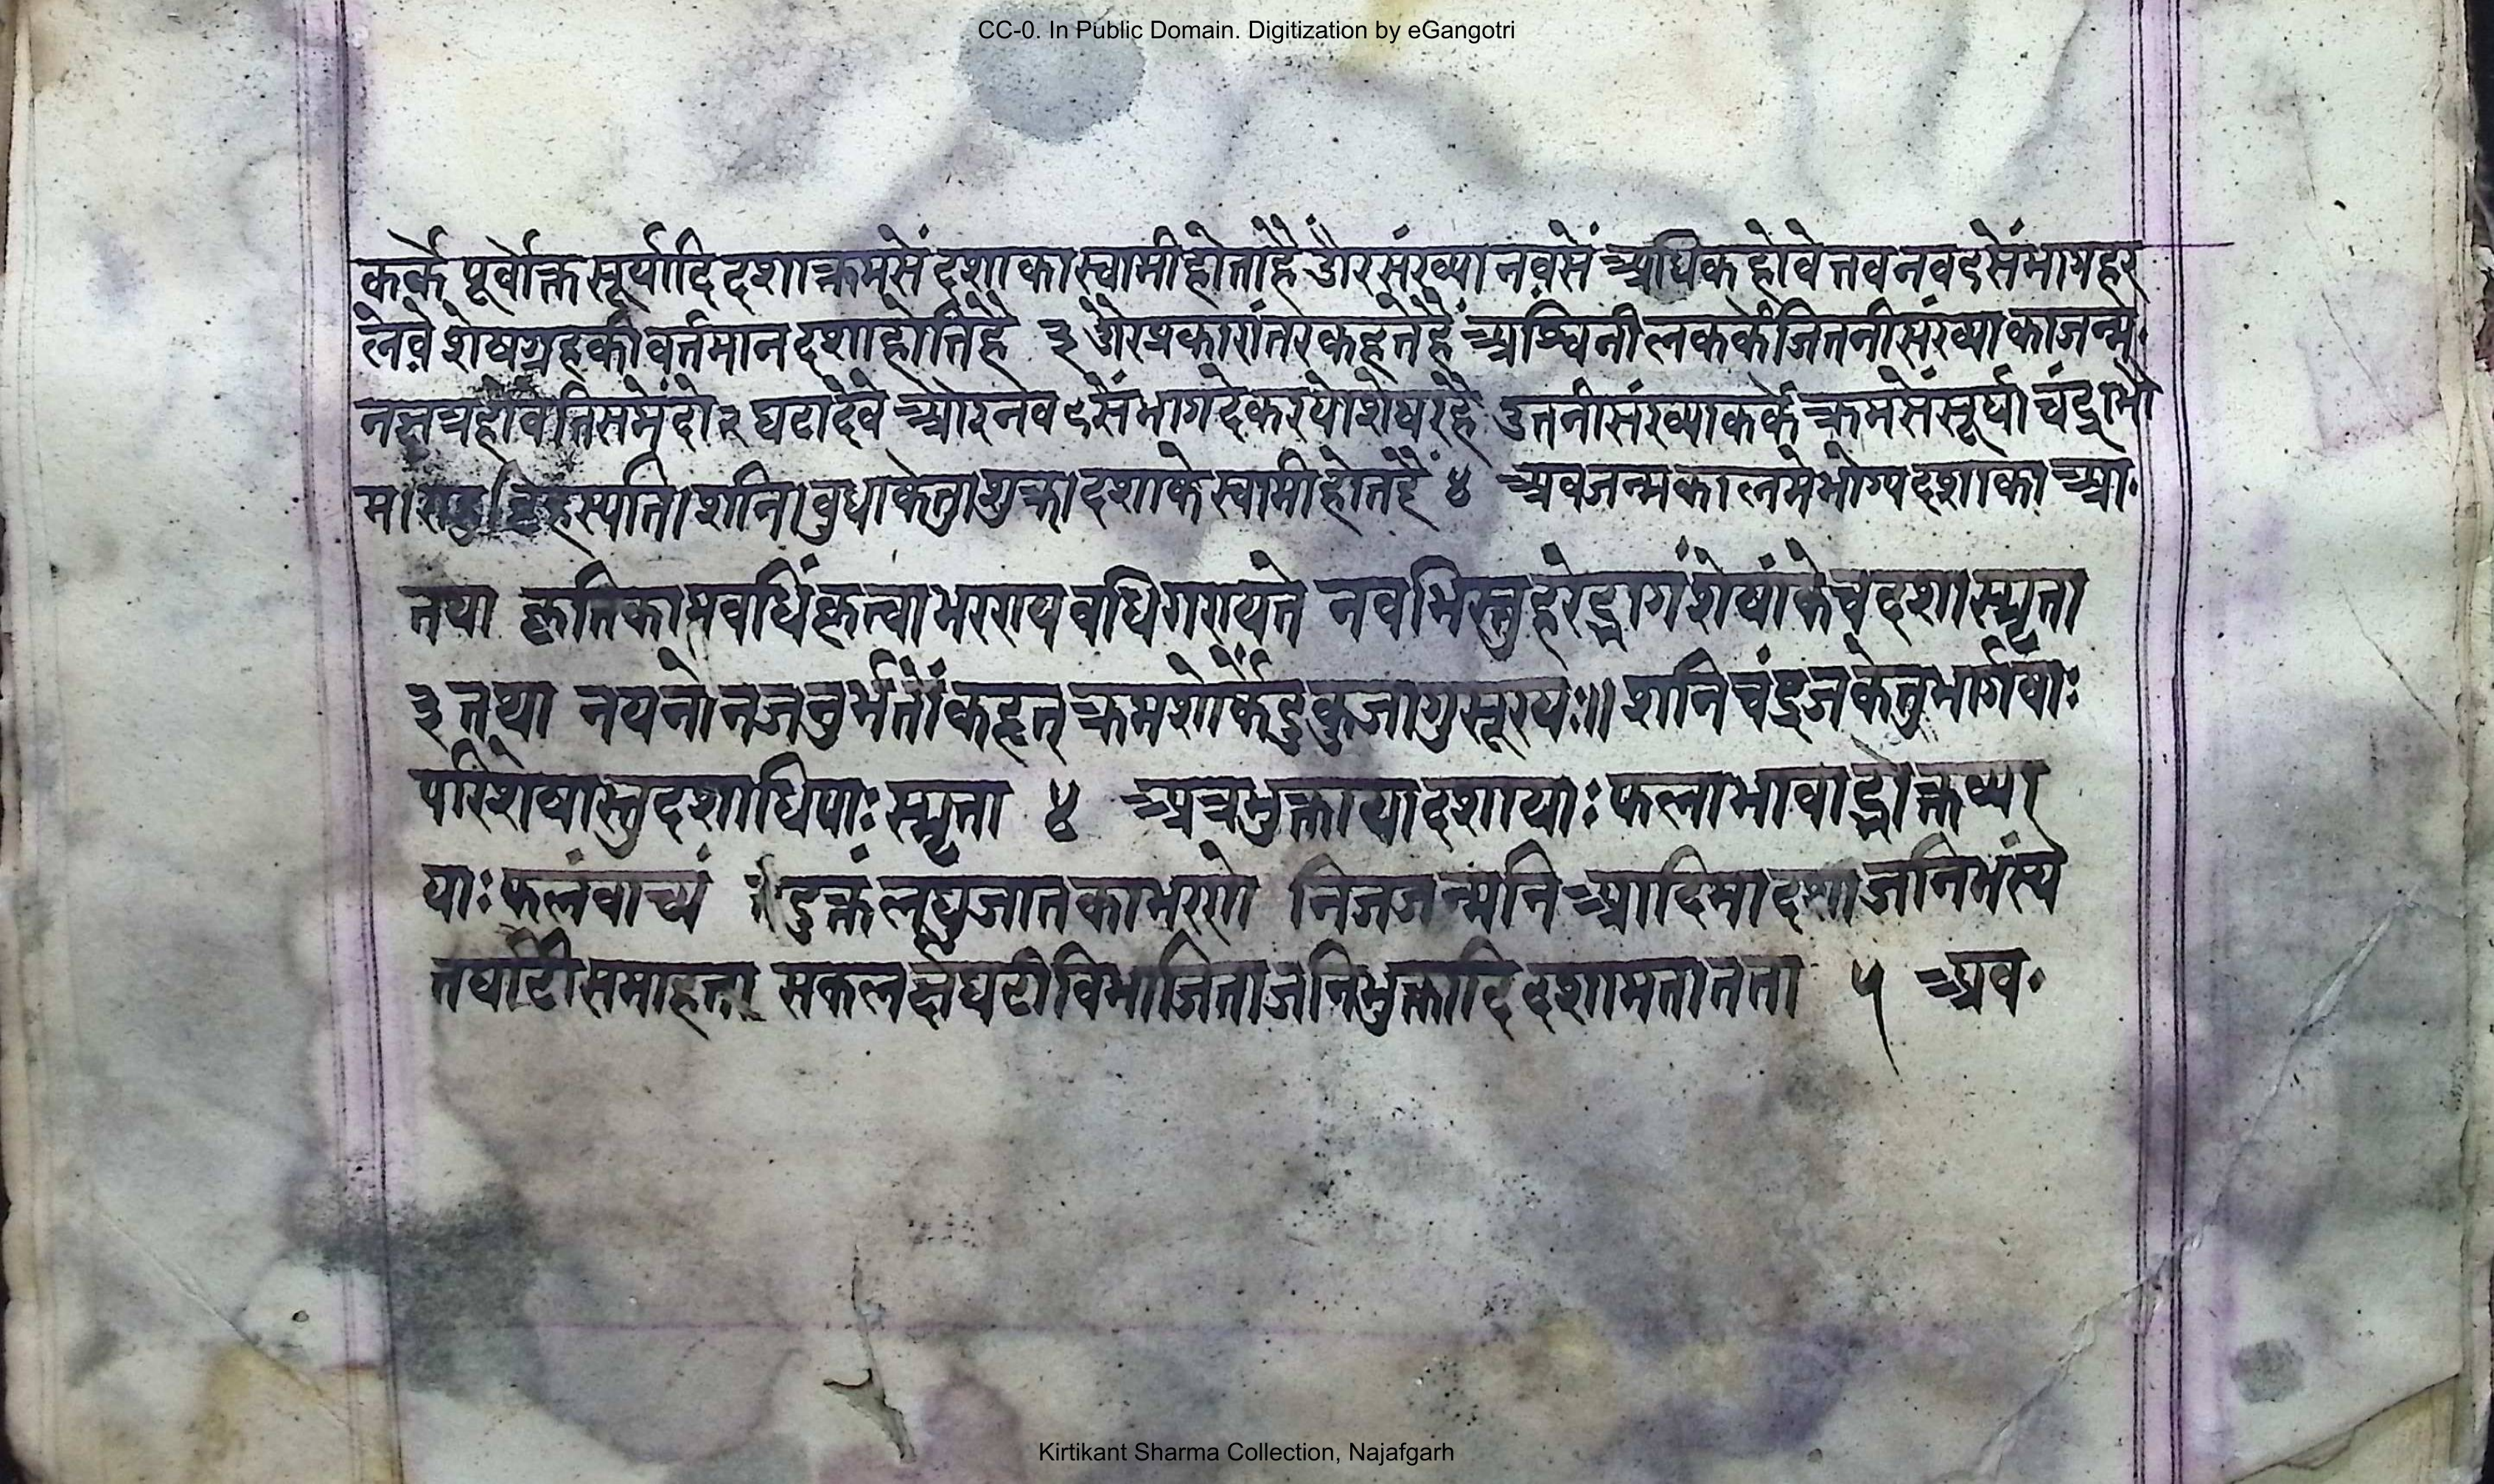 CC-0. In Public Domain. Digitization by eGangotri
कर्के पूर्वोक्त सूर्यादि दशाक्रमसें दशा का स्वामी होताहै औरसंख्या नवसें अधिक होवे तव नव ९सेंभागहर
लेवे शेषग्रहकी वर्त्तमान दशाहोतिहै ३ औरप्रकारांतरकहतेहैं अश्विनीलककें जितनीसंख्याकाजन्म॰
नक्षत्रहोवे तिसमेंदो २ घटादेवे ओरनव ९सेंभागदेकरयोशेषरहै उतनीसंख्याकर्के क्रमसेंसूर्य। चंद्र। भो
म। राहु। वृहस्पति। शनि। वुध। केतु। शुक्र। दशाके स्वामीहोतेहैं ४ अवजन्मकालमेभोग्यदशाका आ॰
तथा कृतिकामवधिंकृत्वा भरण्यवधिगण्यते नवभिस्तुहरेद्भागंशेषांकेचदशास्मृता
३ तथा नयनोनजनुर्भतोंकहृत् क्रमशोर्केंदुकुजागुसूरयः॥ शनिचंद्रजकेतुभार्गवाः
परिशेषास्तुदशाधिपाः स्मृता ४ अत्रभुक्तायादशायाः फलाभावाद्भोक्तव्या
याः फलंवाच्यं उक्तंलघुजातकाभरणे निजजन्मनि आदिमादशाजनिभस्य
तर्घाटीसमाहता सकलर्क्षघटीविभाजिताजनिभुक्तादि दशामतातता ५ अव॰
Kirtikant Sharma Collection, Najafgarh